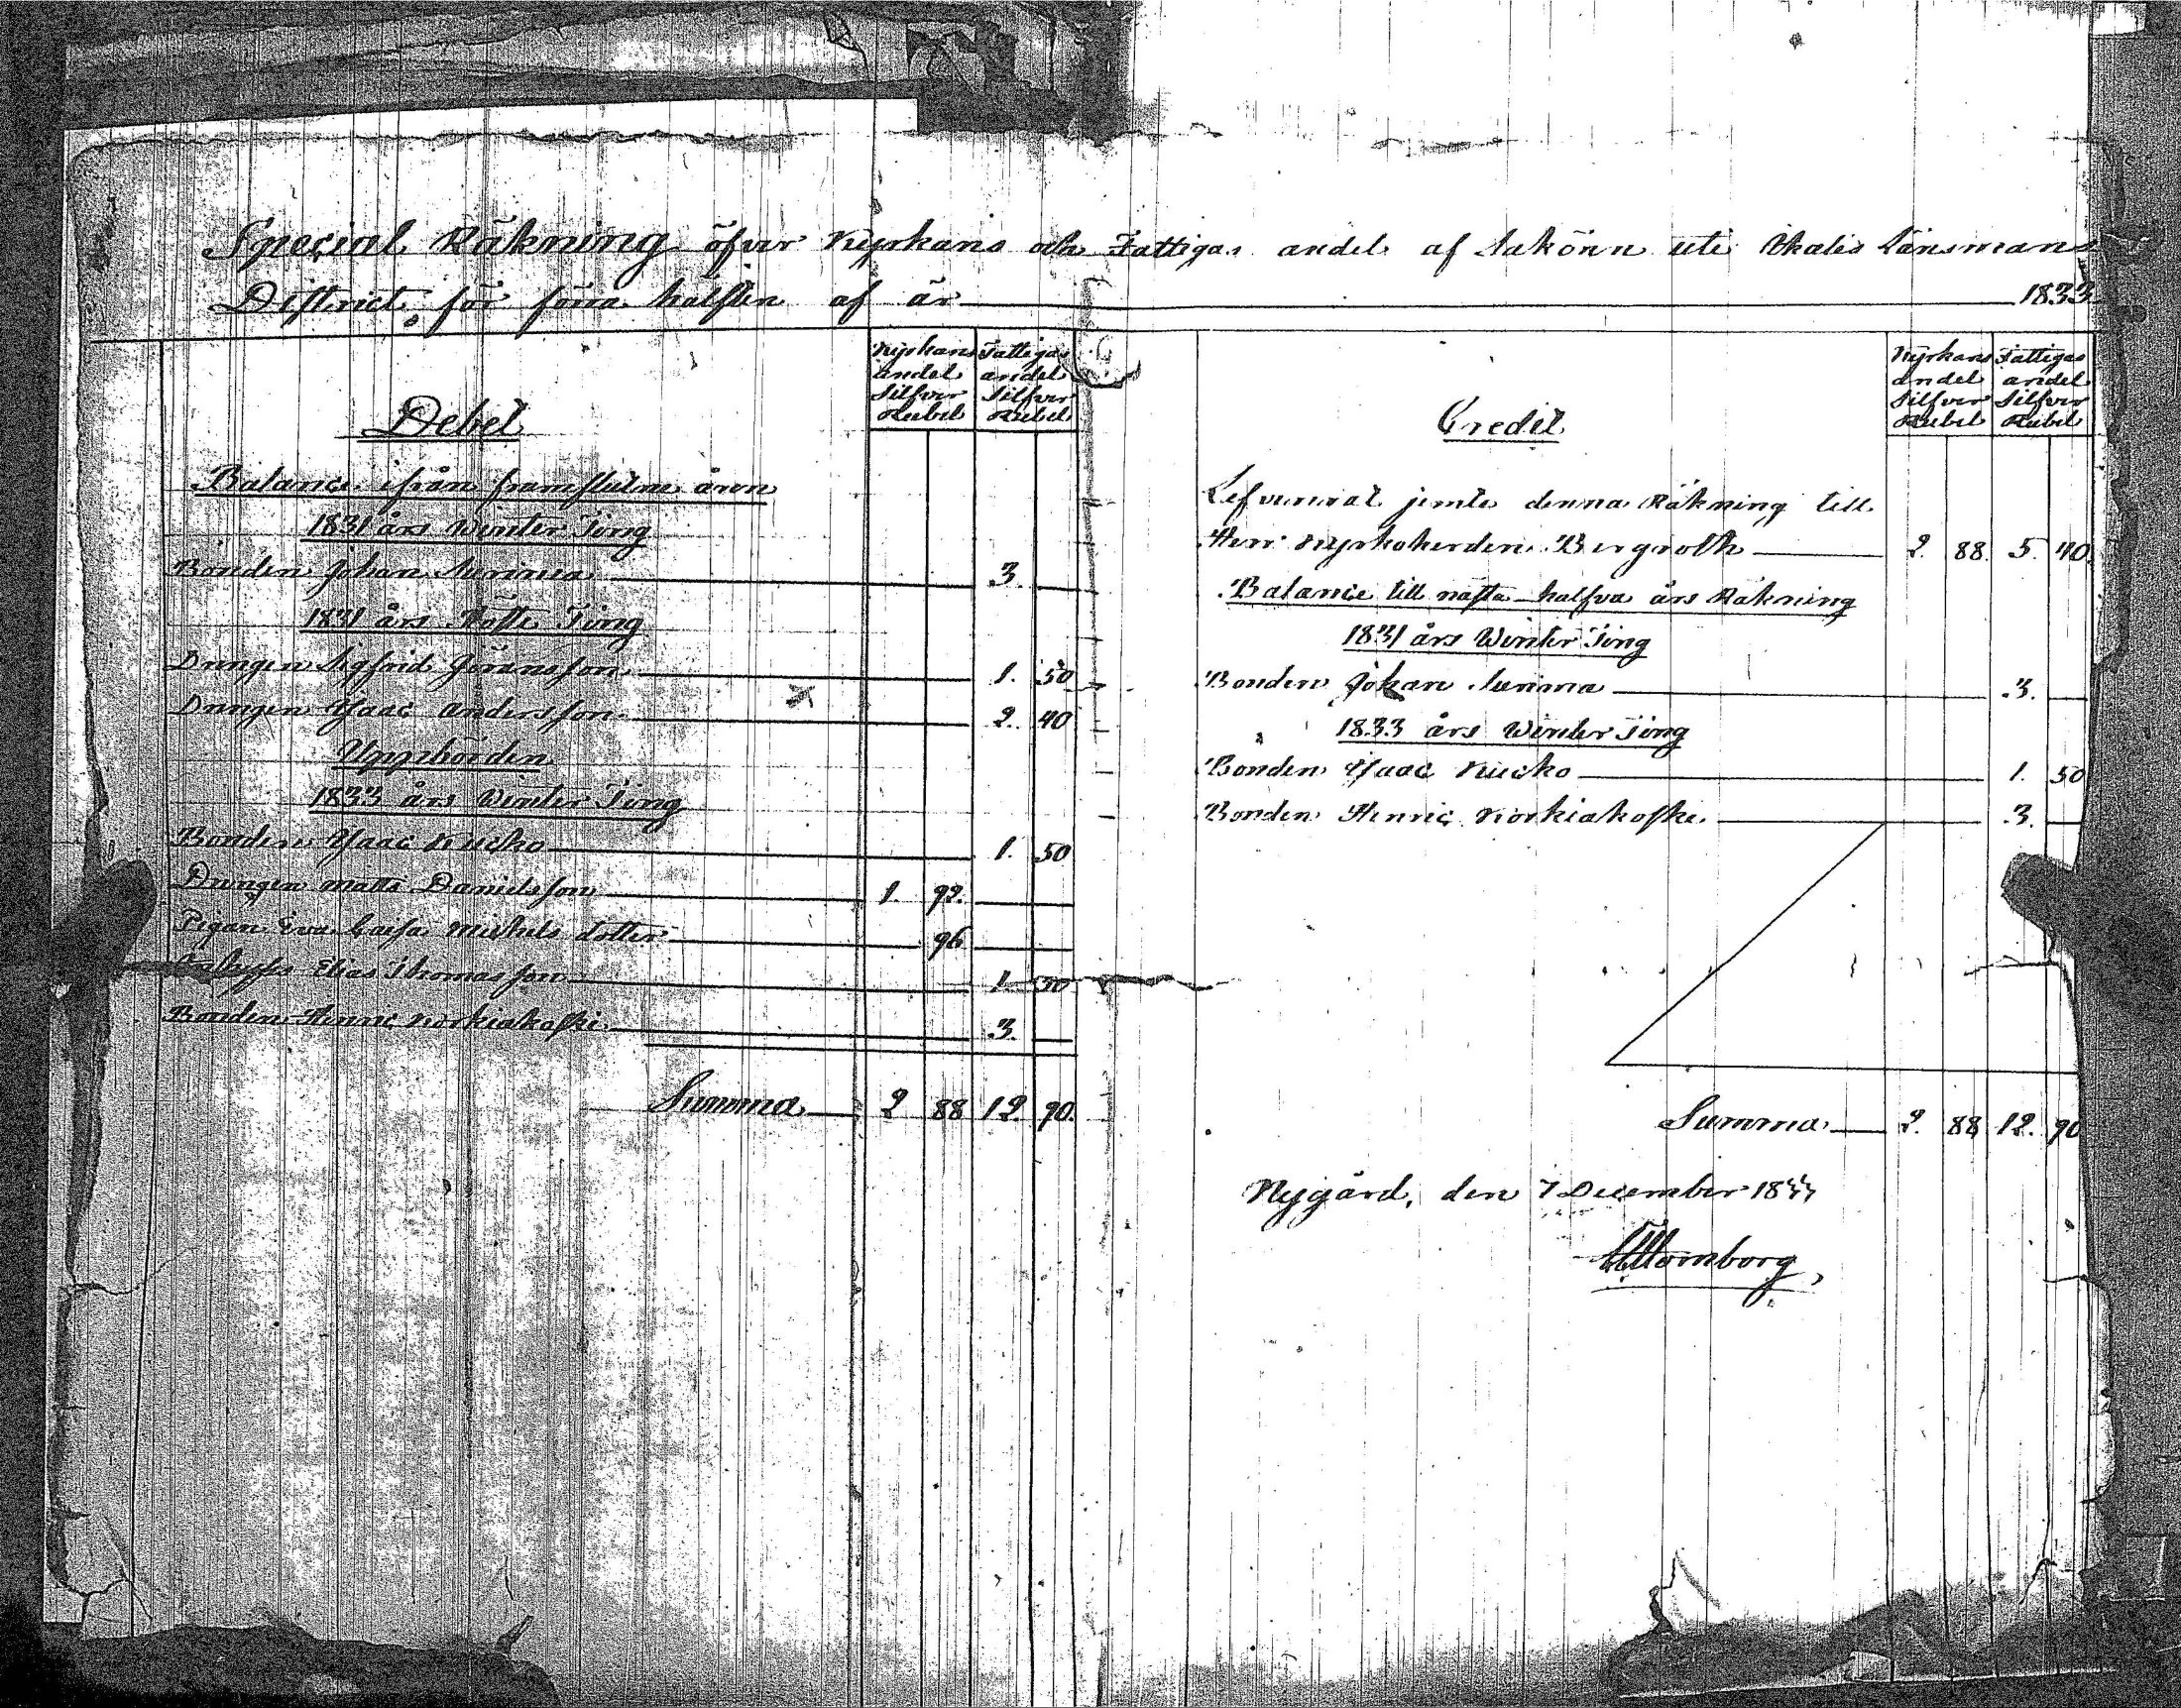 Special Räkning öfver Kyrkans och Fattigas andel af Sakören uti Ikalis Länsmans
District, för förra hälften af år 1833
Debet
Kyrkans andel Silfver Rubel
Fattigas andel Silfver Rubel
Balance ifrån framflutne åren
1831 års Winter Ting
Bonden Johan 3.
1831 års Höste Ting
Drängen Sigfrid Göransson 1. 50
Drängen Isaac Andersson 2. 40
Uppbörden
1833 års Winter Ting
Bonden Isaac Kucko 1. 50
Drängen Matts Danielsson 1. 92.
Pigan Eva Caisa Michels dotter 96
Elias Thomasson 1. 50
Bonden Henric Körkiäkoski 3.
Summa 2 88 12. 90.
Credit
Kyrkans andel Silfver Rubel
Fattigas andel Silfver Rubel
Lefvererat jemte denna Räkning till
Herr Kyrkoherden Bergroth 2. 88. 5. 40.
Balance till nästa halfva års Räkning
1831 års Winter Ting
Bonden Johan 3.
1833 års Winter Ting
Bonden Isaac Kucko 1. 50
Bonden Henric Körkiäkoski 3.
Summa 2. 88 12. 90
Nygård, den 7 December 18